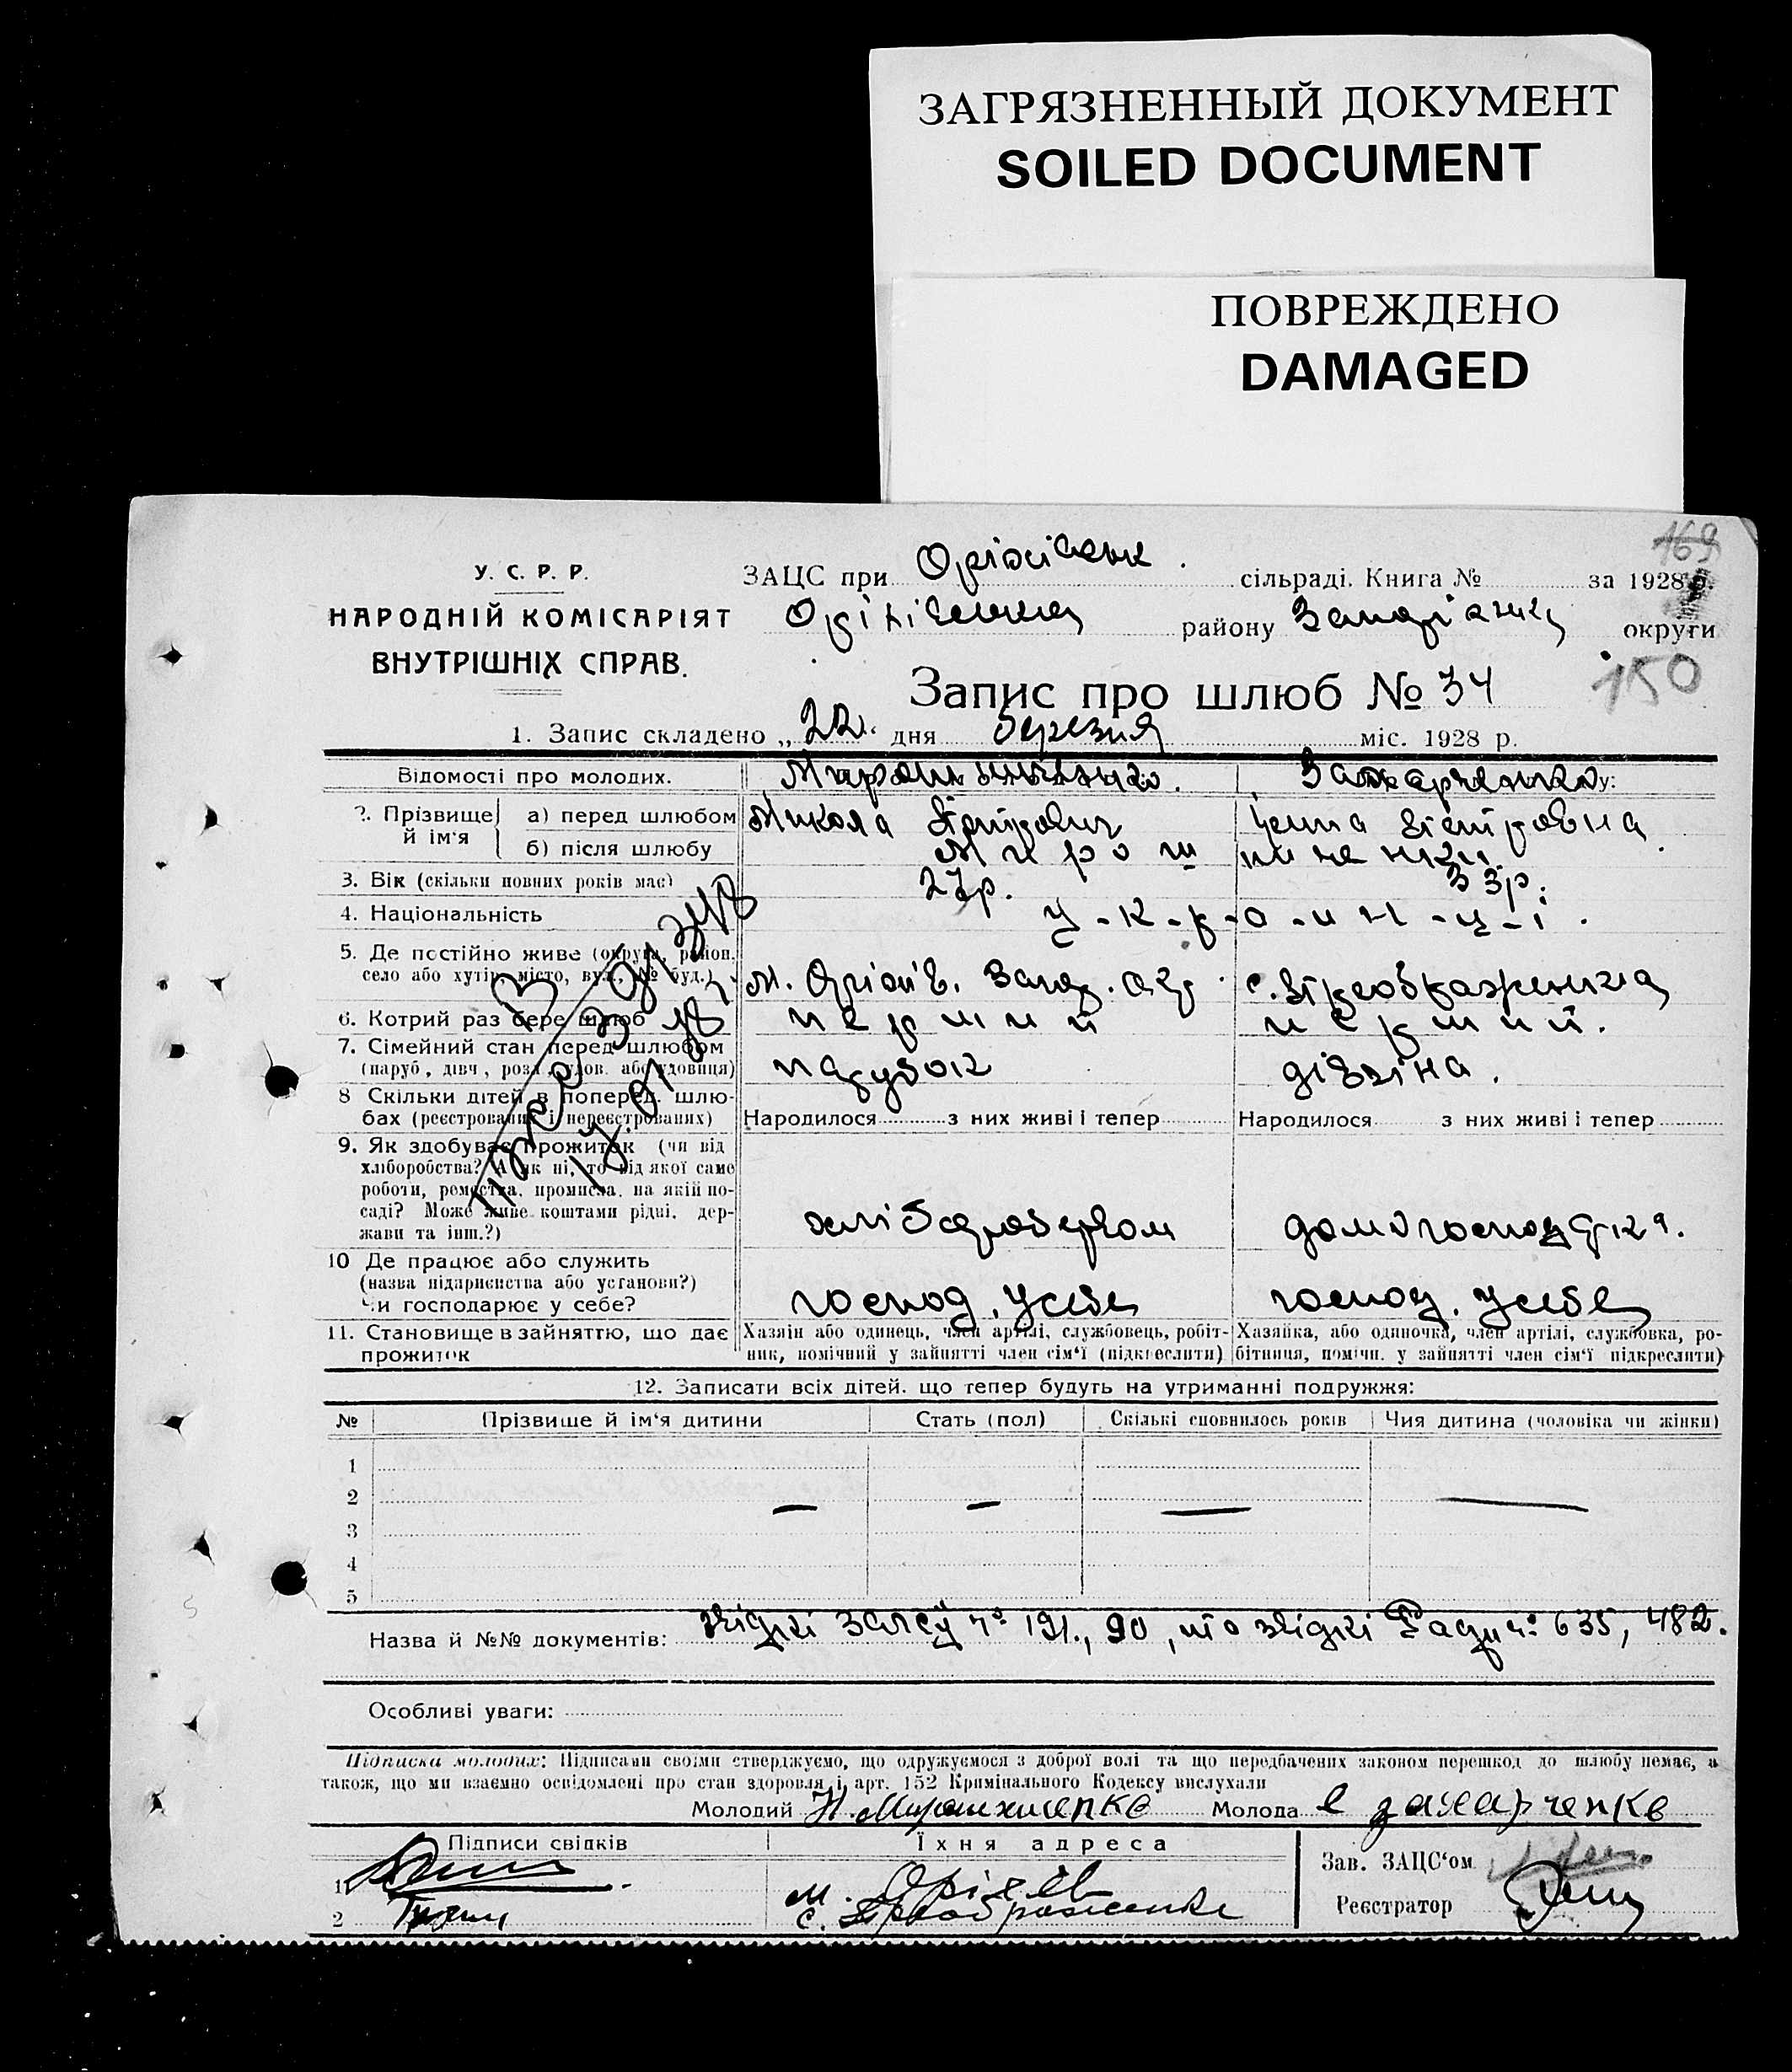 ЗАГРЯЗНЕННЫЙ ДОКУМЕНТ
SOILED DOCUMENT
ПОВРЕЖДЕНО
DAMAGED
169
У. С. Р. Р.
НАРОДНІЙ КОМІСАРІЯТ
ВНУТРІШНІХ СПРАВ.
ЗАЦС при сільраді. Книга № за 1928 р.
району округи
150
Запис про шлюб № 34
1. Запис складено „22“ дня березня міс. 1928 р.
Відомості про молодих.
Захарченко
2. Прізвище й ім‘я
а) перед шлюбом Микола
б) після шлюбу
3. Вік (скільки повних років має) 27р. 33р.
4. Національність у-к-р-а-и-н-ц-і.
5. Де постійно живе (округа, район, село або хутір, місто, вул., № буд.) м. Оріхів. Запор. окр. с. Преображенка
6. Котрий раз бере шлюб перший перший.
7. Сімейний стан перед шлюбом (паруб., дівч., розл., удов. або удовиця) парубок дівчина.
8 Скільки дітей в поперед. шлюбах (реєстрованих і нереєстрованих) Народилося з них живі і тепер Народилося з них живі і тепер
9. Як здобуває прожиток (чи від
хліборобства? А як ні, то від якої саме
роботи, ремества, промисла, на якій по-
саді? Може живе коштами рідні, дер-
жави та інш.?) хлібаробством домогосподарка.
10 Де працює або служить
(назва підприємства або установи?)
Чи господарює у себе? господ. у себе господ. у себе
11. Становище в зайняттю, що дає прожиток
Хазяїн або одинець, член артілі, службовець, робіт-
ник, помічний у зайнятті член сім‘ї (підкреслити)
Хазяйка, або одиночка, член артілі, службовка, ро-
бітниця, помічн. у зайнятті член сім‘ї підкреслити)
12. Записати всіх дітей, що тепер будуть на утриманні подружжя:
№ Прізвище й ім‘я дитини Стать (пол) Скількі сповнилось років Чия дитина (чоловіка чи жінки)
1
2 — — — —
3
4
5
Назва й №№ документів: звідкі № 191., 90, та звідкі Ради № 635, 482.
Особливі уваги:
Підписка молодих: Підписами своїми стверджуємо, що одружуємося з доброї волі та що передбачених законом перешкод до шлюбу немає, а
також, що ми взаємно освідомлені про стан здоровля і арт. 152 Кримінального Кодексу вислухали
Молодий Молода Є Захарченко
Підписи свідків Їхня адреса
1. м. Оріхів
2 с. Преображенка
Зав. ЗАЦС‘ом
Реєстратор